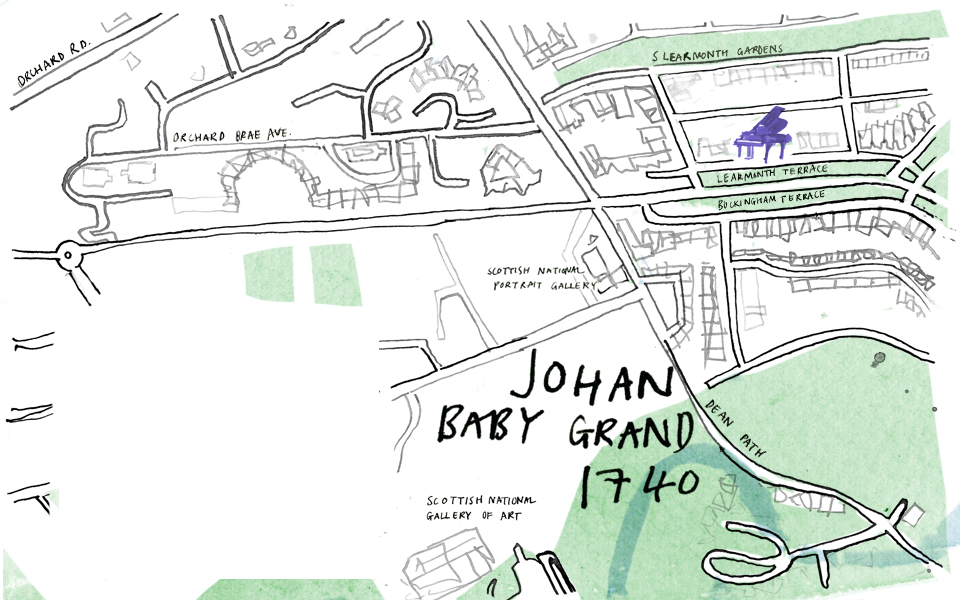 ORCHARD RD.
S LEARMONTH GARDENS
ORCHARD BRAE AVE.
LEARMONTH TERRACE
BUCKINGHAM TERRACE
SCOTTISH NATIONAL
PORTRAIT GALLERY
JOHAN
BABY GRAND
1740
DEAN PATH
SCOTTISH NATIONAL
GALLERY OF ART